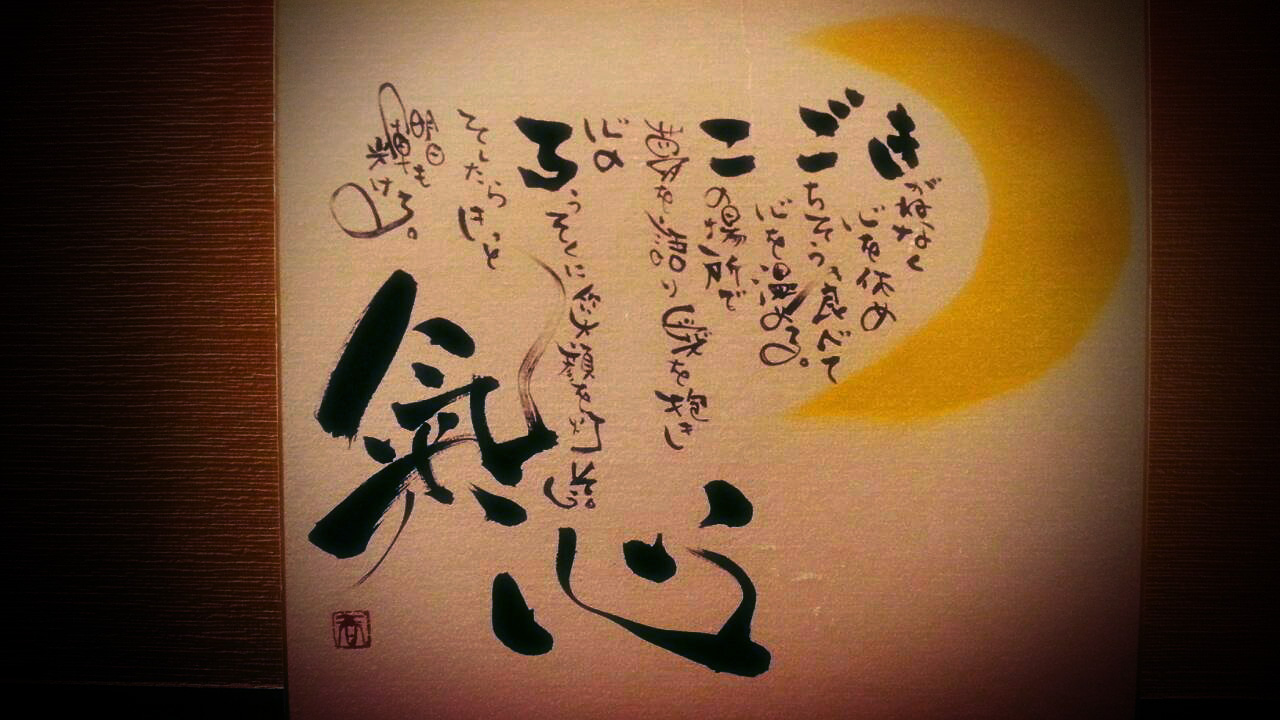 きがねなく
心を休め
ごちそう食べて
心を温める。
この場所で
を語り を抱き
心の
ろうそくに 笑顔を灯そう。
そしたらきっと
明日も
輝ける。
心
氣